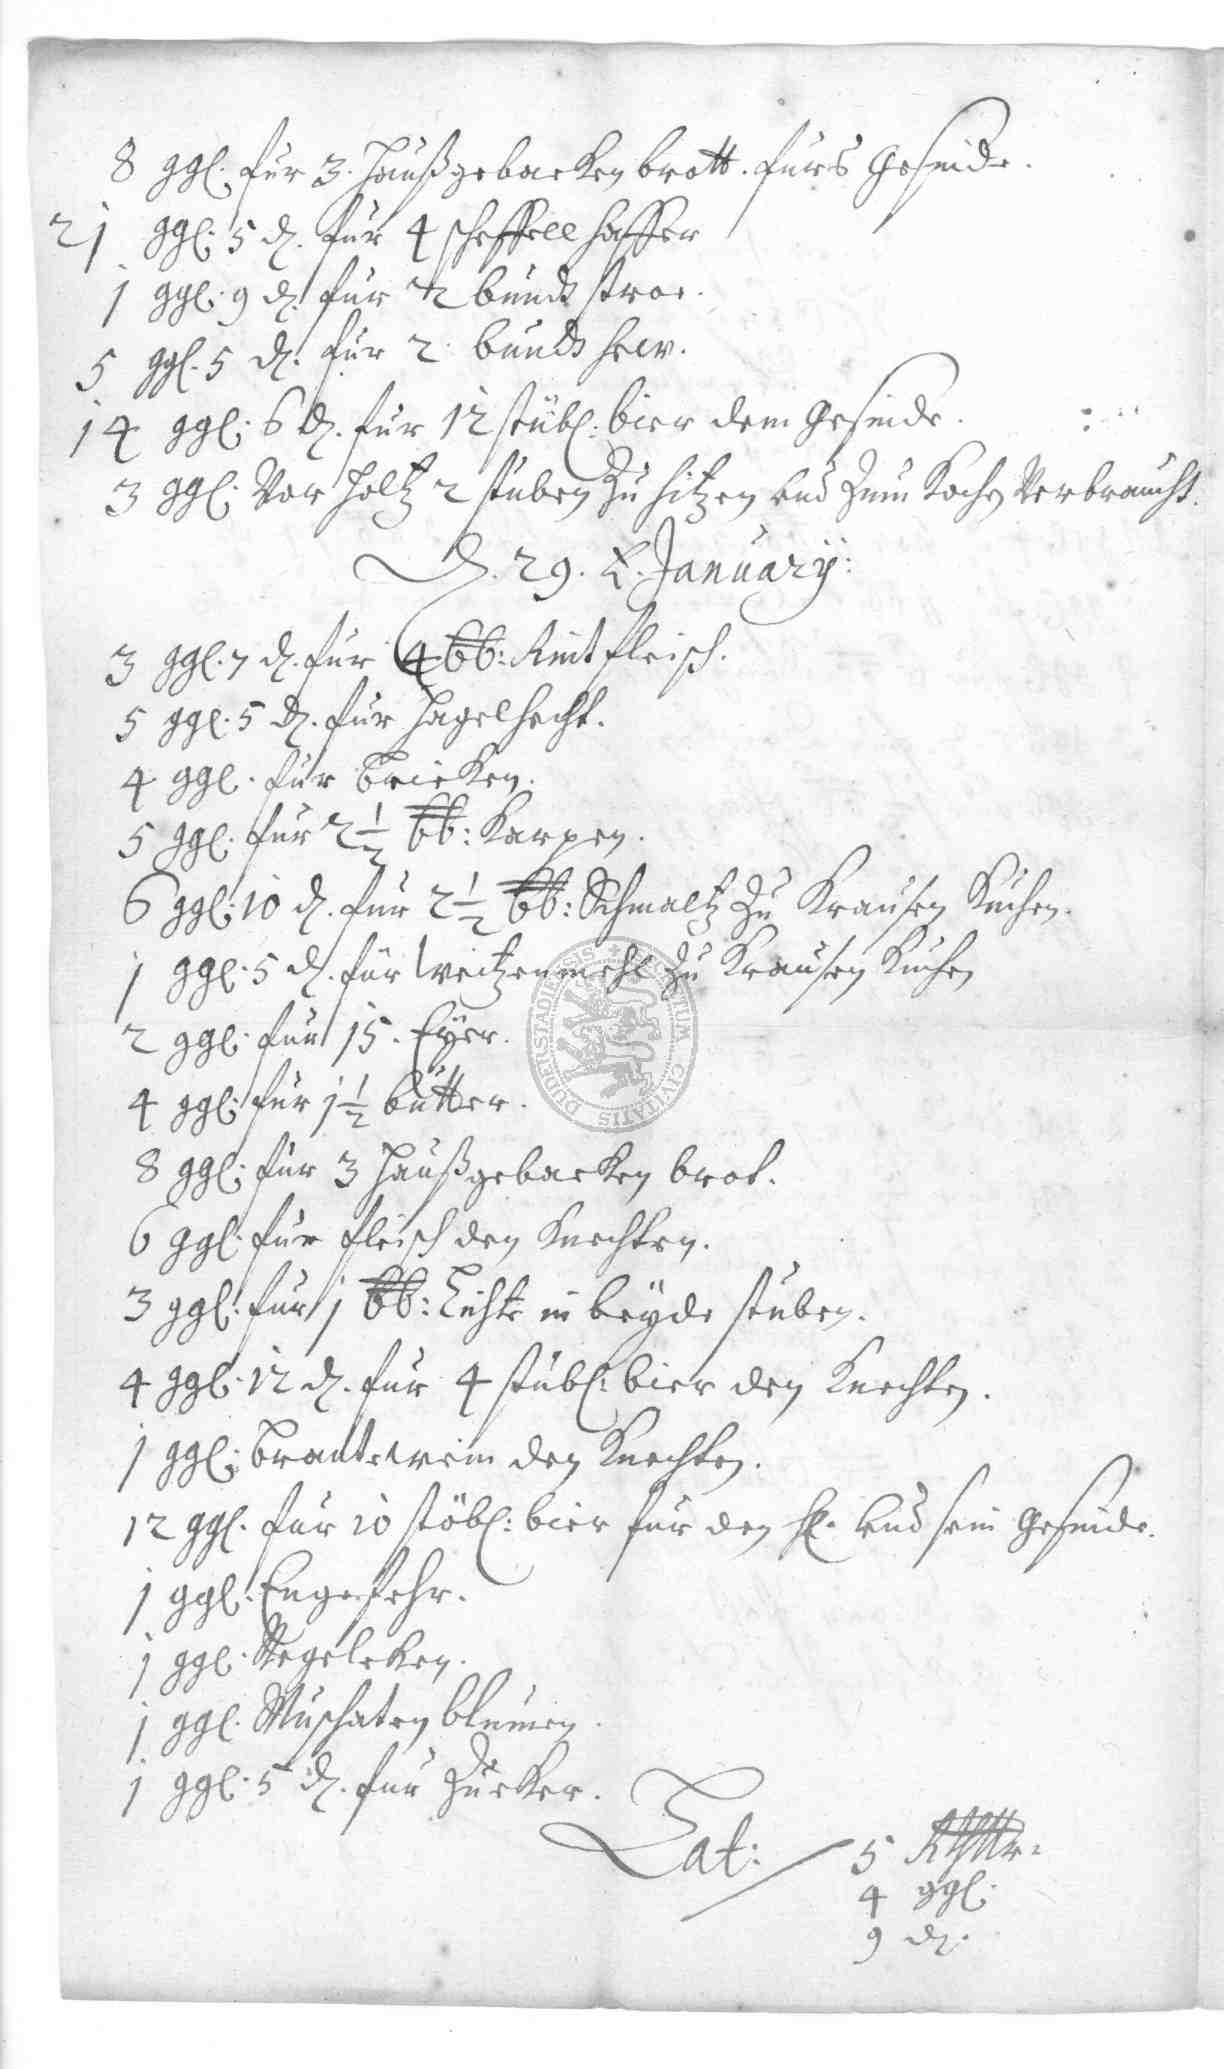 8 ggl. fur 3. haußgebacken brott. furs gesinde.
21 ggl. 5 d. fur 4 scheffell haffer
1 ggl. 9 d. fur 2 bundt stroe.
5 ggl. 5 d. fur 2 bundt hew.
14 ggl. 6 d. fur 12 stübl: bier dem gesinde.
3 ggl. Vor holtz 2 stuben zu hitzen und zum kochen verbraucht.
D. 29. January:
3 ggl. 7 d. fur 4 lb: Rintfleisch.
5 ggl. 5 d. fur hagelhecht.
4 ggl. fur Bricken.
5 ggl. fur 2 1/2 lb: Karpen.
6 ggl. 10 d. fur 2 1/2 lb: Schmaltz zu Krausen Kuchen.
1 ggl. 5 d. für weitzenmehl zu Krausen Kuchen
2 ggl. fur 15. Eyer.
4 ggl. fur 1 1/2 butter.
8 ggl. fur 3 haußgebacken brot.
6 ggl. fur fleisch den Knechten.
3 ggl. fur 1 lb: Lichte in beyde stuben.
4 ggl. 12 d. fur 4 stübl: bier den Knechten.
1 ggl. Brantewein den Knechten.
12 ggl. fur 10 stöbl: bier fur den H. und sein gesinde.
1 ggl. Engefehr.
1 ggl. Negelcken.
1 ggl. Muschaten blumen.
1 ggl. 5 d. fur Zucker.
Lat: 5 Rthlr.
4 ggl.
9 d.
DUDERSTADIENSIS CIVITATIS